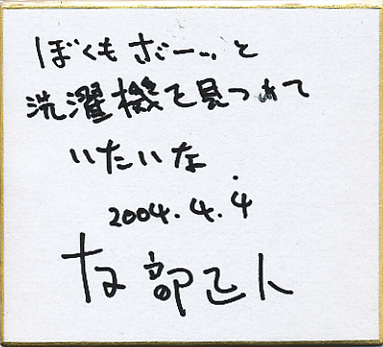 ぼくもボーッと
洗濯機を見つめて
いたいな.
2004.4.4
友部正人